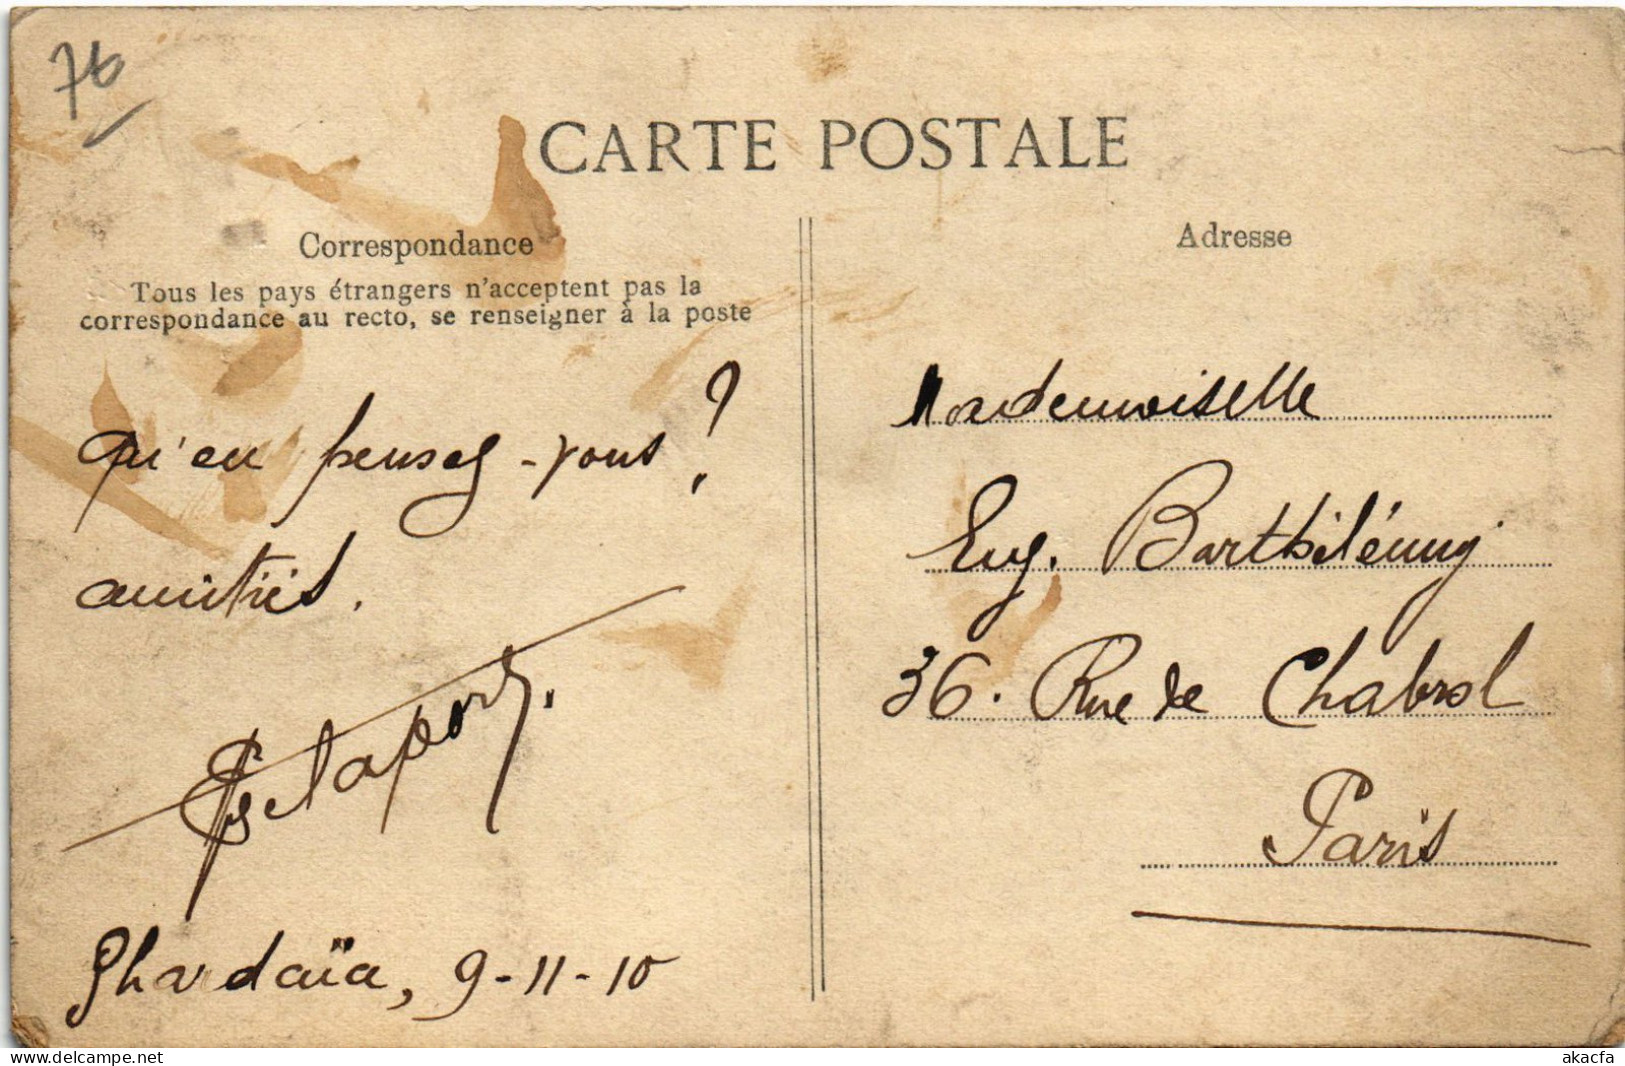 76
CARTE POSTALE
Correspondance
Tous les pays étrangers n'acceptent pas la
correspondance au recto, se renseigner à la poste
qu'en pensez-vous ?
amitiés.
Delaporte.
Ghardaïa, 9-11-10
Adresse
Mademoiselle
Eug. Barthélémy
36. Rue de Chabrol
Paris
www.delcampe.net
akacfa